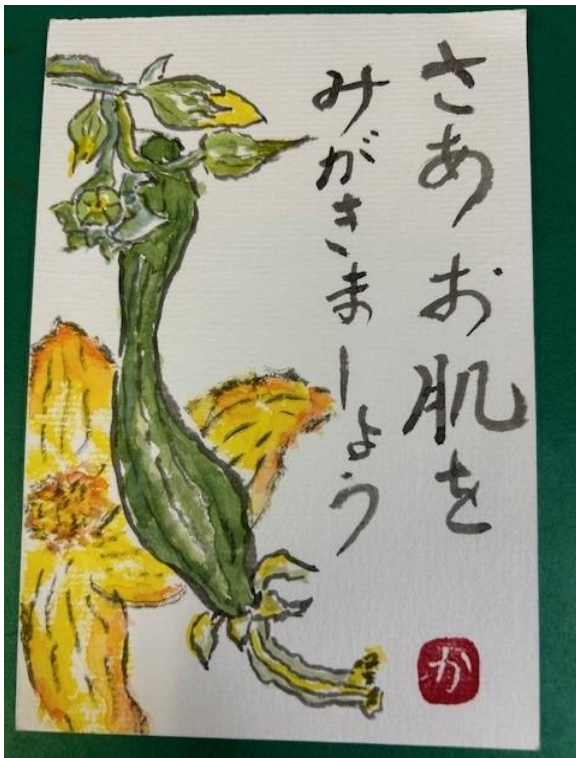 さあお肌を
みがきましょう
か